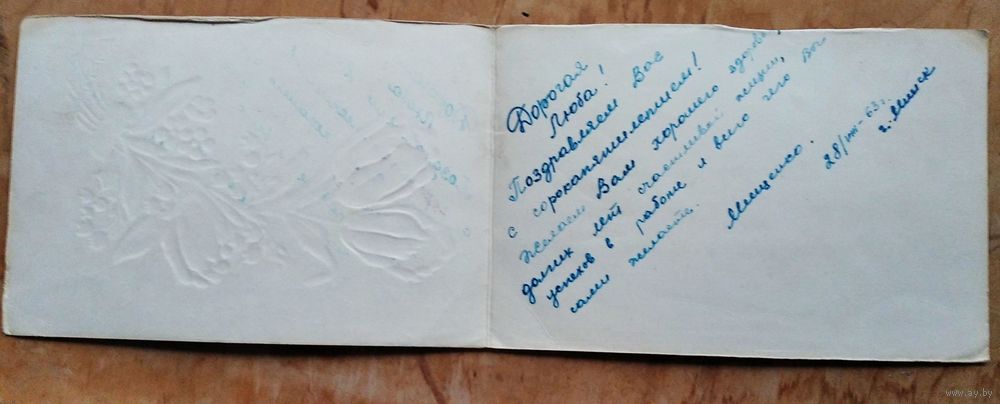 Дорогая
Люба!
Поздравляем Вас
с сорокапятилетием!
Желаем Вам хорошего здоровья,
долгих лет счастливой жизни,
успехов в работе и всего чего Вы
сами желаете.
Мищенко.
28/VIII-63г.
г. Минск
www.ay.by